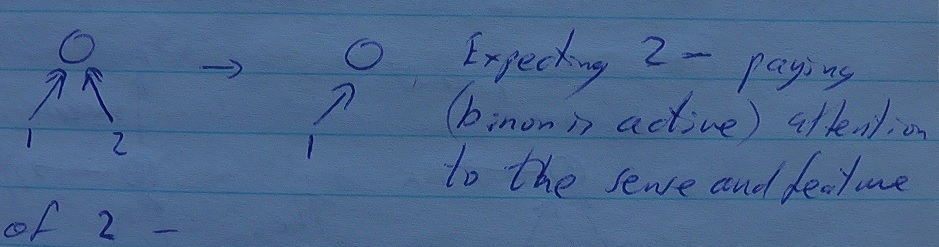 Expecting 2 - paying
(binon is active) attention
1 2 1
to the sense and feature
of 2 -